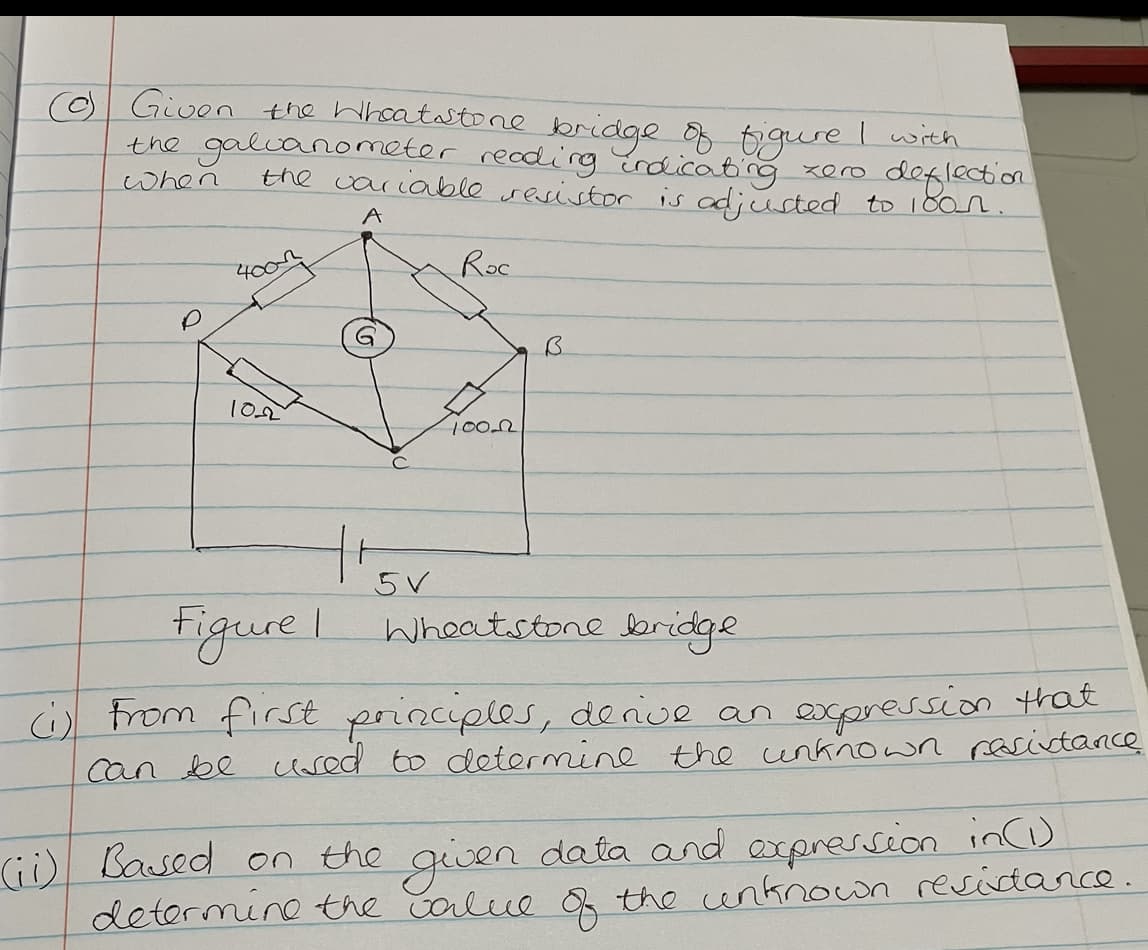 (c) Given the Wheatstone bridge of figure 1 with
the galvanometer reading indicating zero deflection
when the variable resistor is adjusted to 100Ω.
A
400Ω
Rx
D
G
B
10Ω
100Ω
C
5V
Figure 1 Wheatstone bridge
(i) From first principles, derive an expression that
can be used to determine the unknown resistance
(ii) Based on the given data and expression in (1)
determine the value of the unknown resistance.